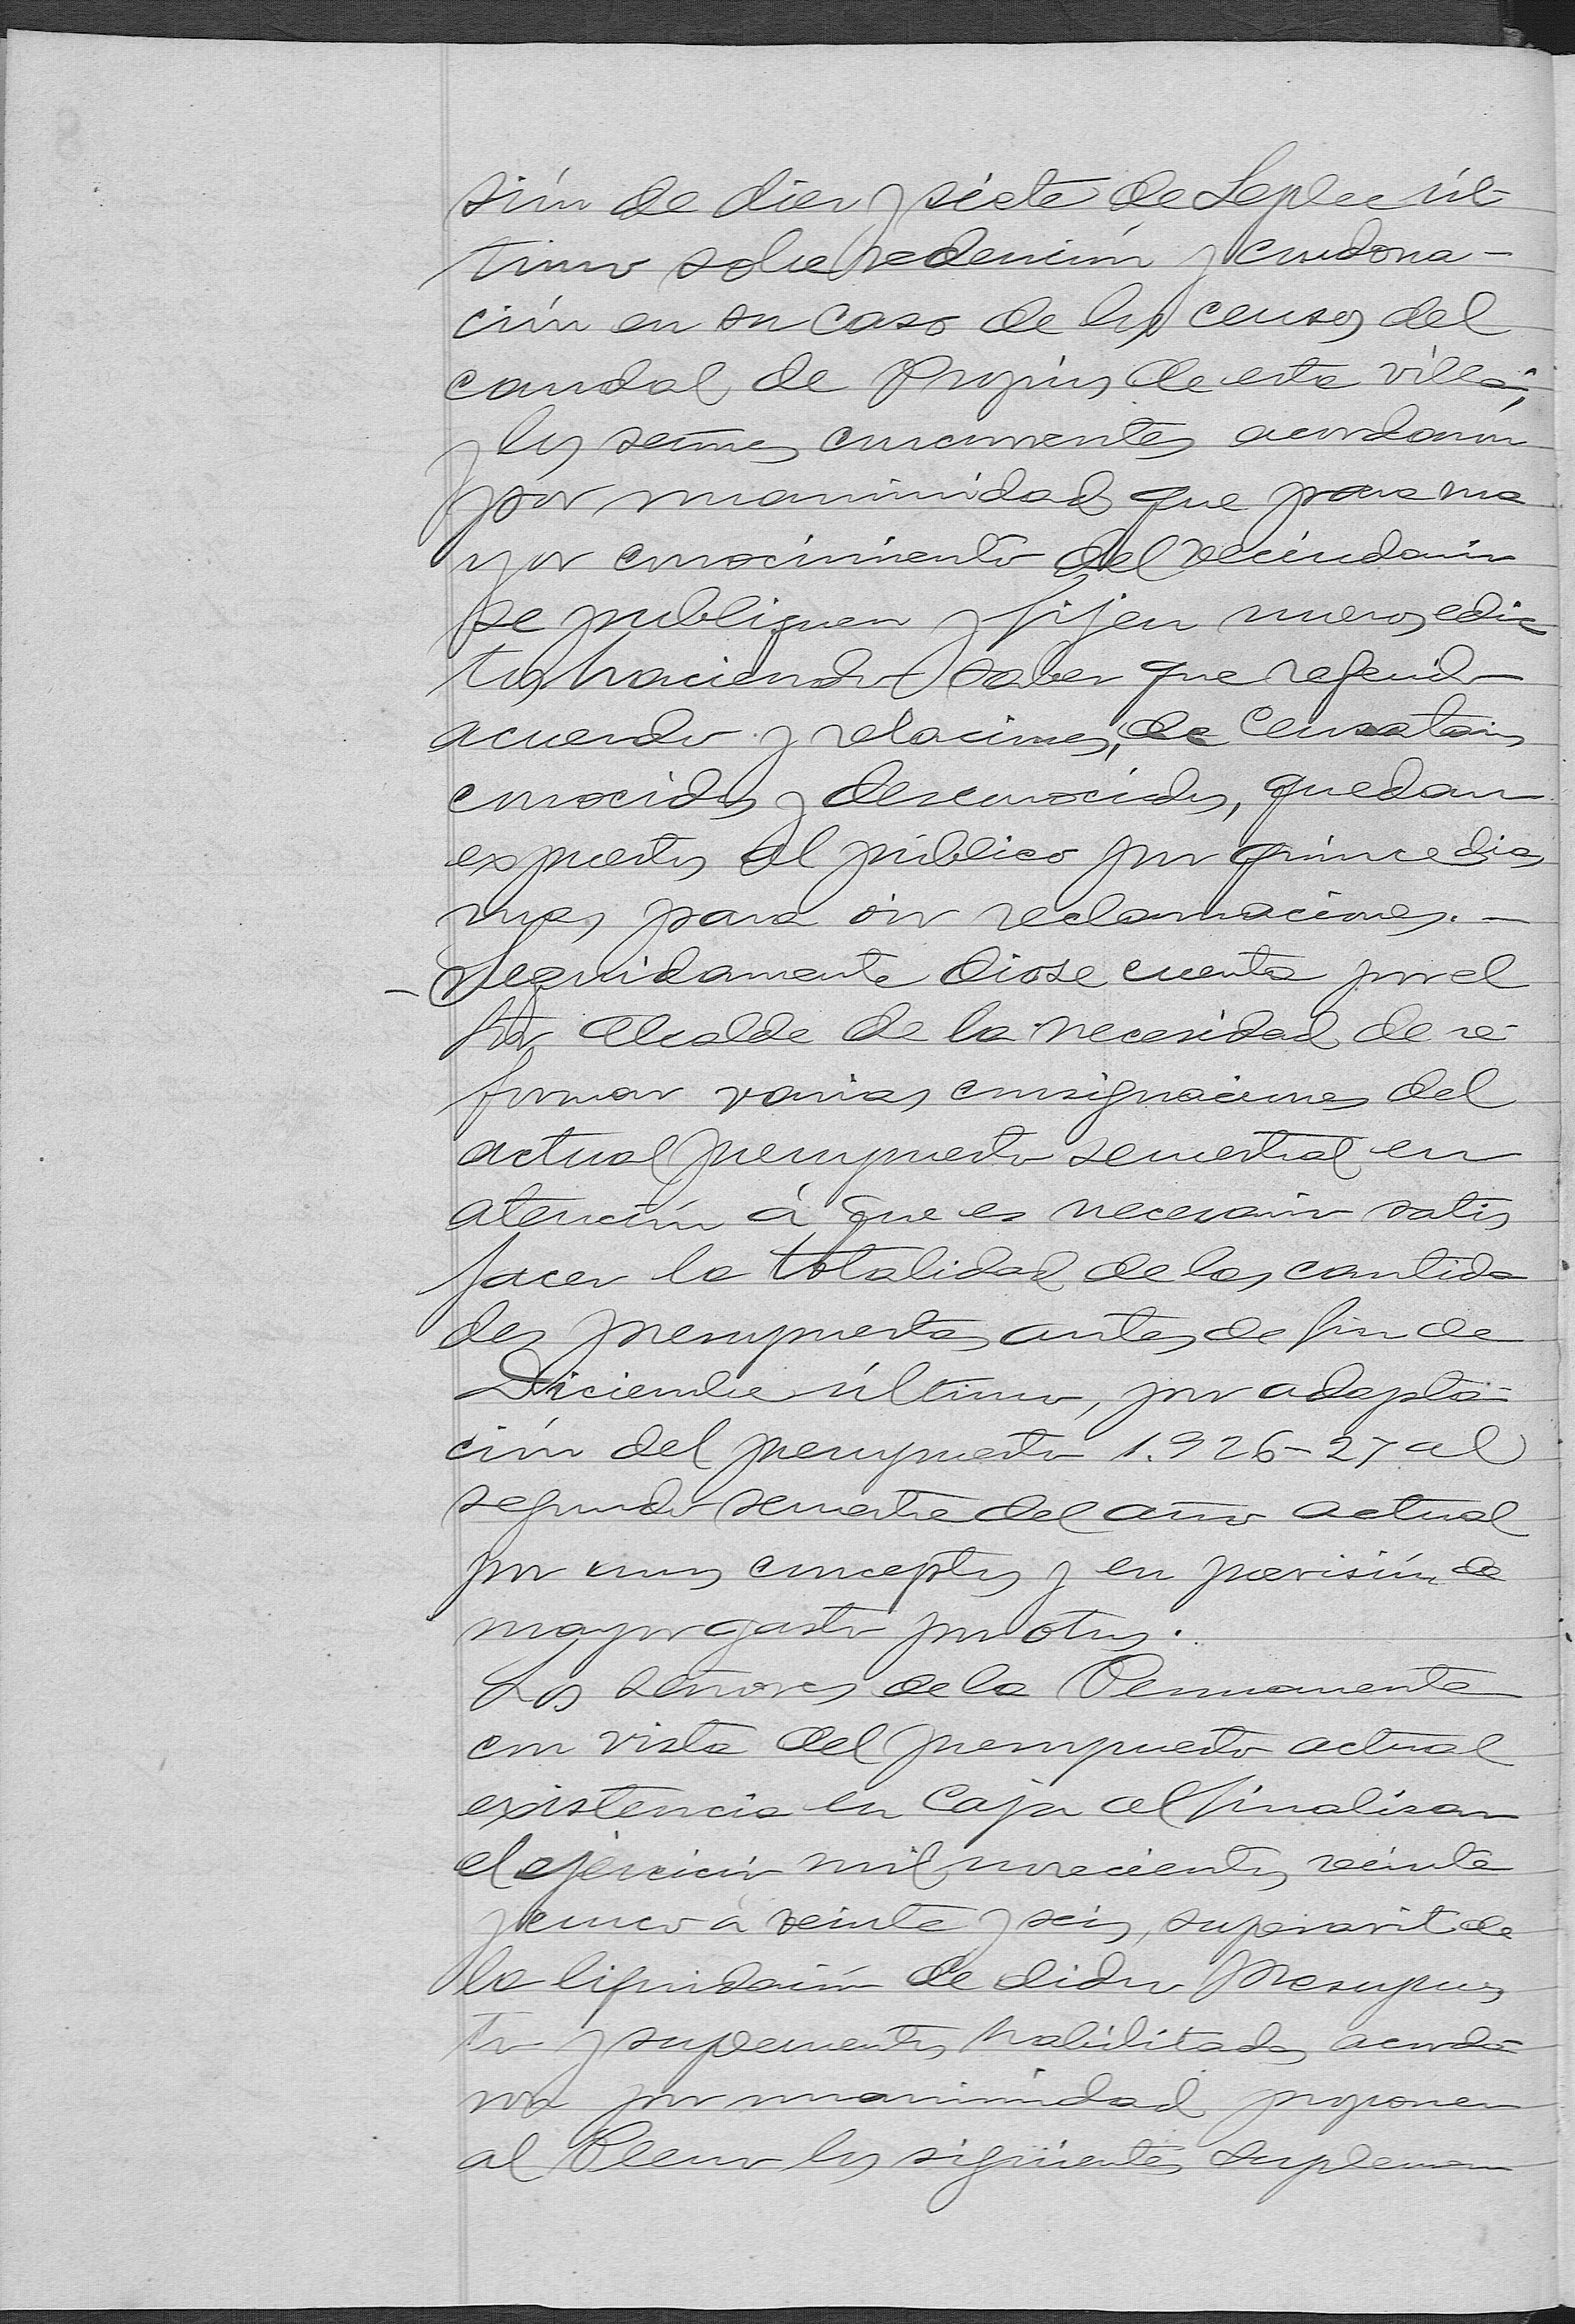 sión de diez y siete de Sepbre úl-
timo sobre redención y condona-
ción en su caso de los censos del
caudal de Propios de esta villa;
y los señores concurrentes acordaron
por unanimidad que para ma
yor conocimiento del vecindario
se publiquen y fijen nuevos edic
tos haciendo saber que referido
acuerdo y relaciones, de Censatarios
conocidos y desconocidos, quedan
expuestos al público por quince dias
mas para oir reclamaciones.-
- Seguidamente diose cuenta por el
Sor Alcalde de la necesidad de re-
formar varias consignaciones del
actual presupuesto semestral en
atención á que es necesario satis
facer la totalidad de las cantida
des presupuestas antes de fin de
Diciembre último, por adapta-
ción del presupuesto 1.926-27 al
segundo semestre del año actual
por unos conceptos y en previsión de
mayor gasto por otros.
Los señores de la Permanente
con vista del presupuesto actual
existencia en Caja al finalizar
el ejercicio mil novecientos veinte
y cinco á veinte y seis, superavit de
la liquidación de dicho Presupues
to y suplementos habilitados acorda-
ron por unanimidad proponer
al Pleno los siguientes suplemen